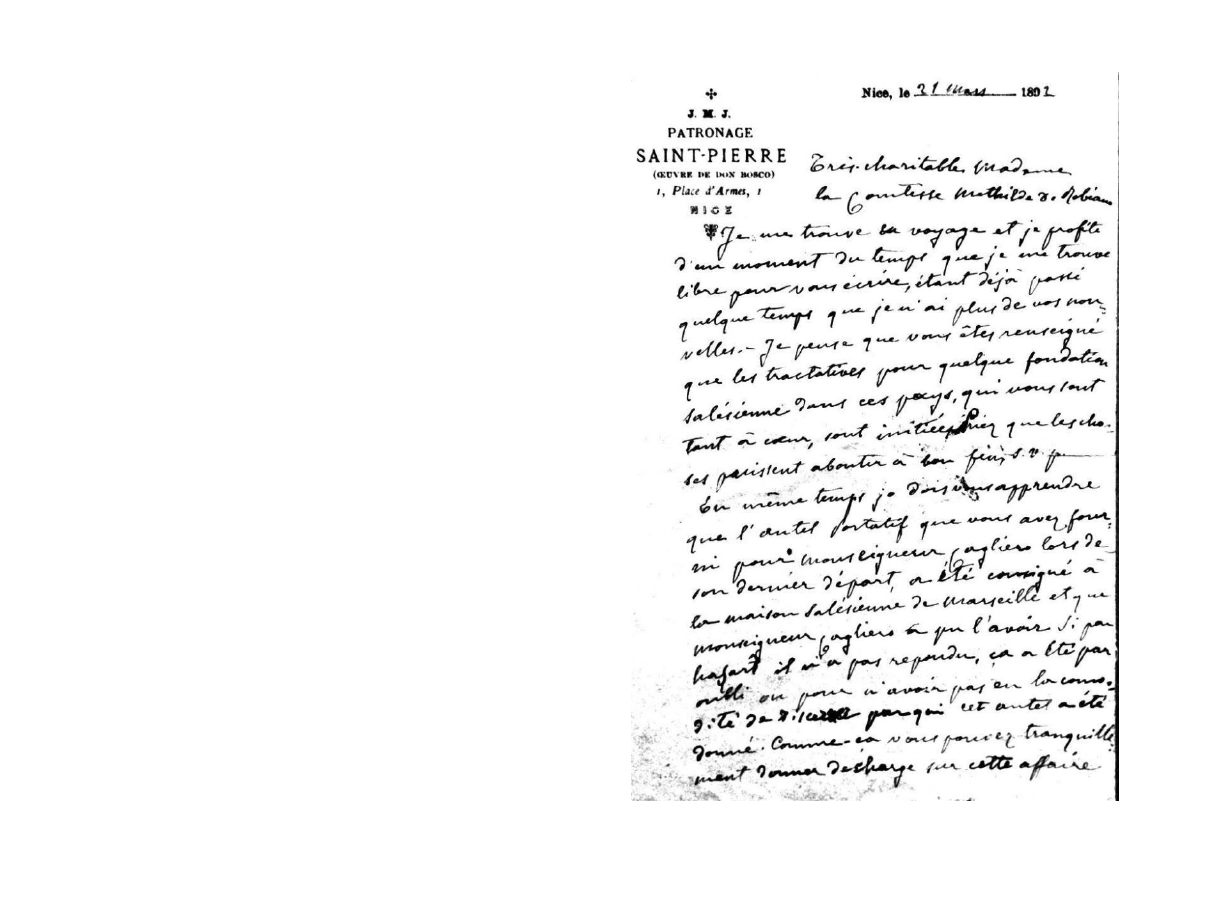 Nice, le 21 Mars 1892
J. M. J.
PATRONAGE
SAINT-PIERRE
(ŒUVRE DE DON BOSCO)
1, Place d'Armes, 1
NICE
Très-charitable Madame
la Comtesse Mathilde de Robiano
Je me trouve en voyage et je profite
d'un moment du temps que je me trouve
libre pour vous écrire, étant déjà passé
quelque temps que je n'ai plus de vos nou-
velles.- Je pense que vous êtes renseigné
que les tractatives pour quelque fondation
salésienne dans ces pays, qui vous sont
tant à cœur, sont initiées. Priez que les cho-
ses puissent aboutir à bon fin, s. v. p
En même temps je dois vous apprendre
que l'autel portatif que vous avez four-
ni pour Monseigneur Cagliero lors de
son dernier départ, a été consigné à
la maison salésienne de Marseille et que
Monseigneur Cagliero a pu l'avoir. Si par
hasard il n'a pas repondu, ça a été par
oubli ou pour n'avoir pas eu la como-
dité de par qui cet autel a été
donné. Comme-ça vous pouvez tranquille-
ment donner décharge sur cette affaire